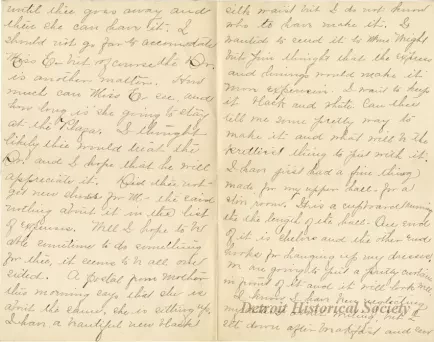 until thee goes away and
then she can have it. I
should not go far to accomodate
Miss C. but of course the Dr.
is another matter. How
much can Miss C. see, and
how long is she going to stay
at the Plaza. I thought
likely thee would treat the
Dr. and I hope that he will
appreciate it. Had thee not
got new shoes for M- she said
nothing about it in the list
of expenses. Will I hope to be
able sometime to do something
for thee, it seems to be all one
sided. A postal from Mother
this morning says that she is
about the same, she is sitting up.
I have a beautiful new black
silk waist but I do not know
who to have make it. I
wanted to send it to
but thought that the express
and linings would make it
more expensive. I want to keep
it black and white. Can thee
tell me some pretty way to
make it and what will be the
prettiest thing to put with it.
I have just had a fine thing
made for my upper hall, for a
store room. It is a cupboard running
the length of the hall. One end
of it is shelves and the other end
hooks for hanging up my dresses.
We are going to put a pretty curtain
in front of it and it will look nice.
I know I have been neglecting
my
set down after breakfast and
Detroit Historical Society